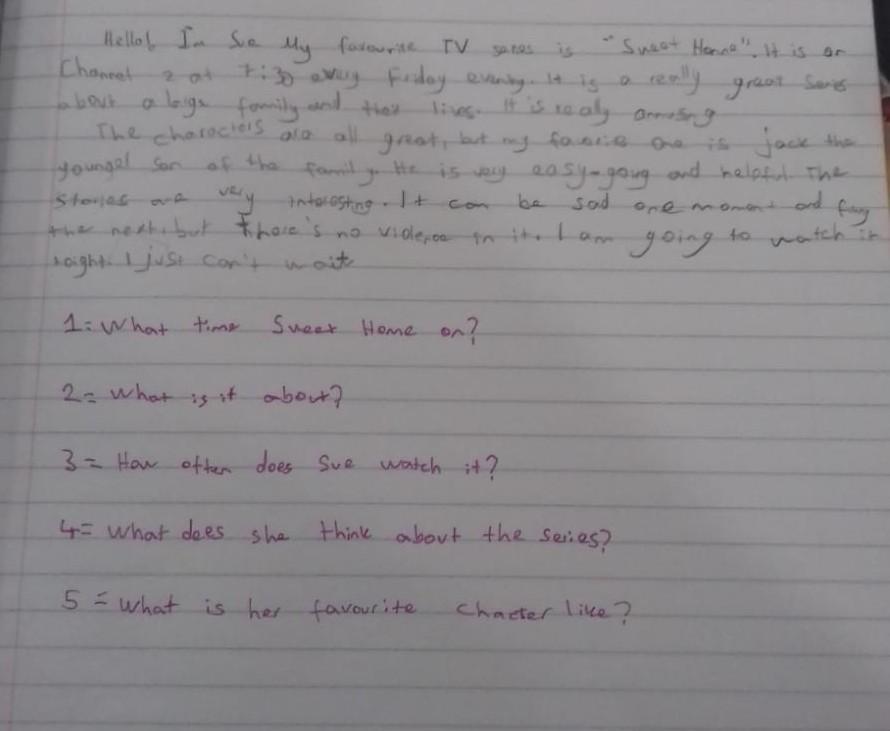 Hello! Im Sue My favourite TV series is "Sweet Home". It is on
Channel 2 at 7:30 every Friday evening. It is a really great series
about a large family and their lives. It is really amusing
The characters are all great, but my favorite one is jack the
youngest son of the family. He is very easy-going and helpful. The
stories are very interesting. It can be sad one moment and funny
the next, but there's no violence in it. I am going to watch it
I just can't wait
1= What time Sweet Home on?
2= What is it about?
3= How often does Sue watch it?
4= What does she think about the series?
5= What is her favourite chacter like?